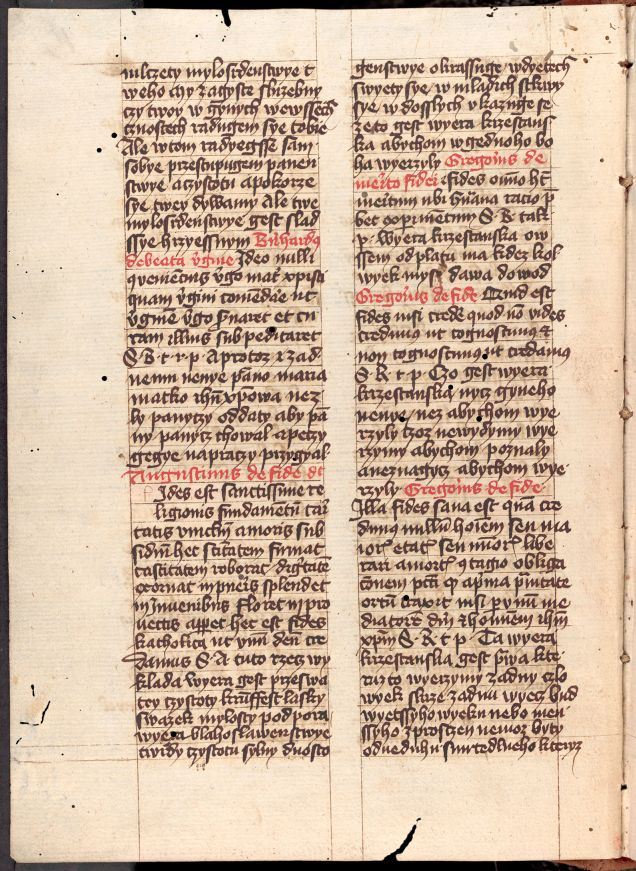 mlczety mylosrdenstwye t
weho aby zagyste sluzebny
czy twoy w gynych wewssech
cznostech radugem sye tobie
Ale w tom radyegsse sam
sobye przestupugem panen
stwye a czystotu a pokorze
sye twey dywamy Ale twe
mylosrdenstwye gest slad
ssye hrzyessnym Bn̄hardꝰ
de beata v̄gine Ideo nulli
virgo mat̄ xpisti
quam v̄gini ut
v̄gine v̄go ret et cu
ram illius subpeditaret
S·B·t·r·p· A protoz z zad
nemu nenye pāno maria
matko xpowa nez
ly panyczy oddaty aby pā
ny panycz chowal a peczy
gegye napraczy przygyal
Augustinus de fide dt
Fides est sanctissime re
ligionis fundamētū cari
tatis vinculū amoris sub
sidiū hec firmat
castitatem roborat
exornat in pueris splendet
in iuuenibus floret in pro
uectis appet hec est fides
katholica ut vnū deū cre
damus S·A· tuto rzecz wy
klada wyera gest przeswa
tey czystoty krūffest lasky
swazek mylosty podpora
wyera blahoslawenstwye
twrdy czystotu sylny duosto
genstwye okrassuge w dyetech
swyety sye w mladich stkwy
sye w dosslych vkazuge se
zeto gest wyera krzestans
ka abychom w gednoho bo
ha wyerzyly Gregoriꝰ de
merito fidei fides om̄o hт̄
meritum ubi hūana racio p̄
bet experimentum S·R· tak
p· Wyera krzestanska ow
ssem odplatu ma kdez kol
wyek mysl dawa dowod
Gregoriꝰ de fide Quid est
fides nisi credē quod nō vides
credimꝰ ut cognoscimꝰ et
non cognoscimꝰ ut credamꝰ
S·R·t·p· Czo gest wyera
krzestanska nycz gyneho
nenye nez abychom wye
rzyly czoz newydymy wye
rzymy abychom poznaly
a neznagycz abychom wye
rzyly Gregoriꝰ de fide·
Illa fides sana est quā cre
dimꝰ nullū hoīem seu ma
ioris etatꝭ seu mīorꝭ libe
rari a morte 9tagio obliga
cōnem pcti qp̄ a prima
ortū traxit nisi p vnū me
diatorē dm̄ et hominem ihm
xpm̄ S·R·t·p· Ta wyera
krzestanska gest prawa kte
ruzto wyerzymy zadny czlo
wyek skrze zadnu wyecz bud
wyetssyho wyeku nebo men
ssyho zprosczen nemoz byty
od neduhu smrtedlneho kteryz